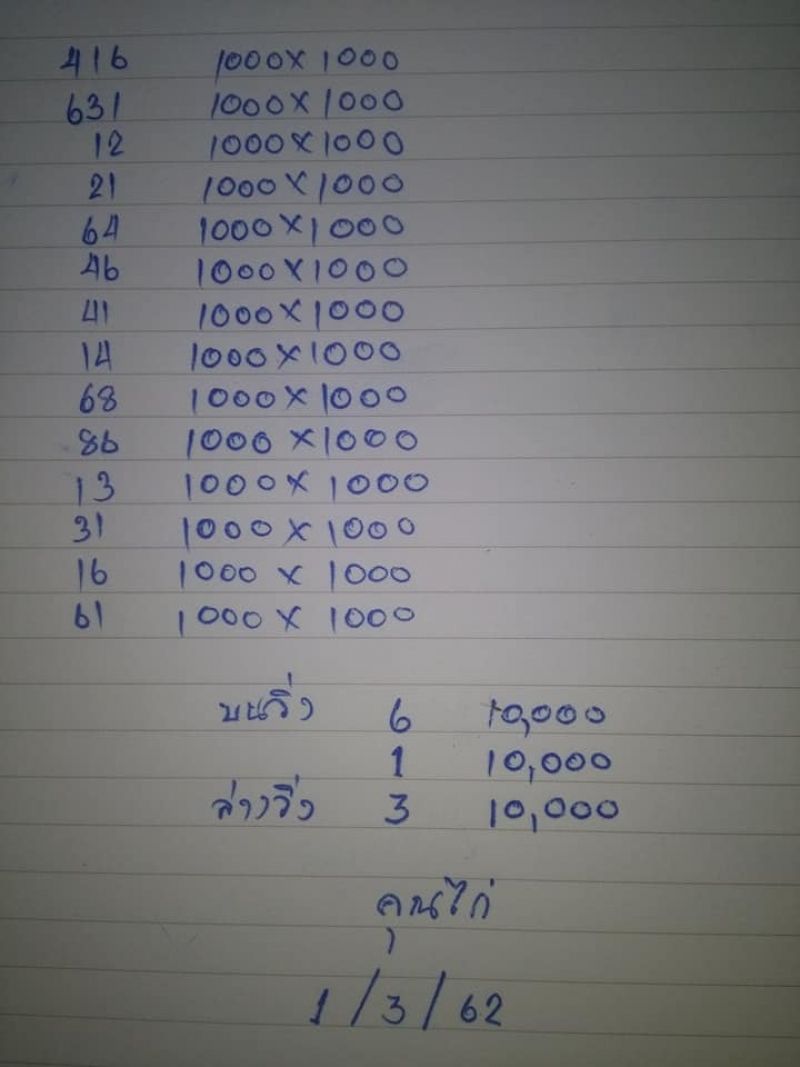 416 1000x1000
631 1000x1000
12 1000x1000
21 1000x1000
64 1000x1000
46 1000x1000
41 1000x1000
14 1000x1000
68 1000x1000
86 1000x1000
13 1000x1000
31 1000x1000
16 1000x1000
61 1000x1000
บนวิ่ง 6 10,000
1 10,000
ล่างวิ่ง 3 10,000
คุณไก่
1/3/62